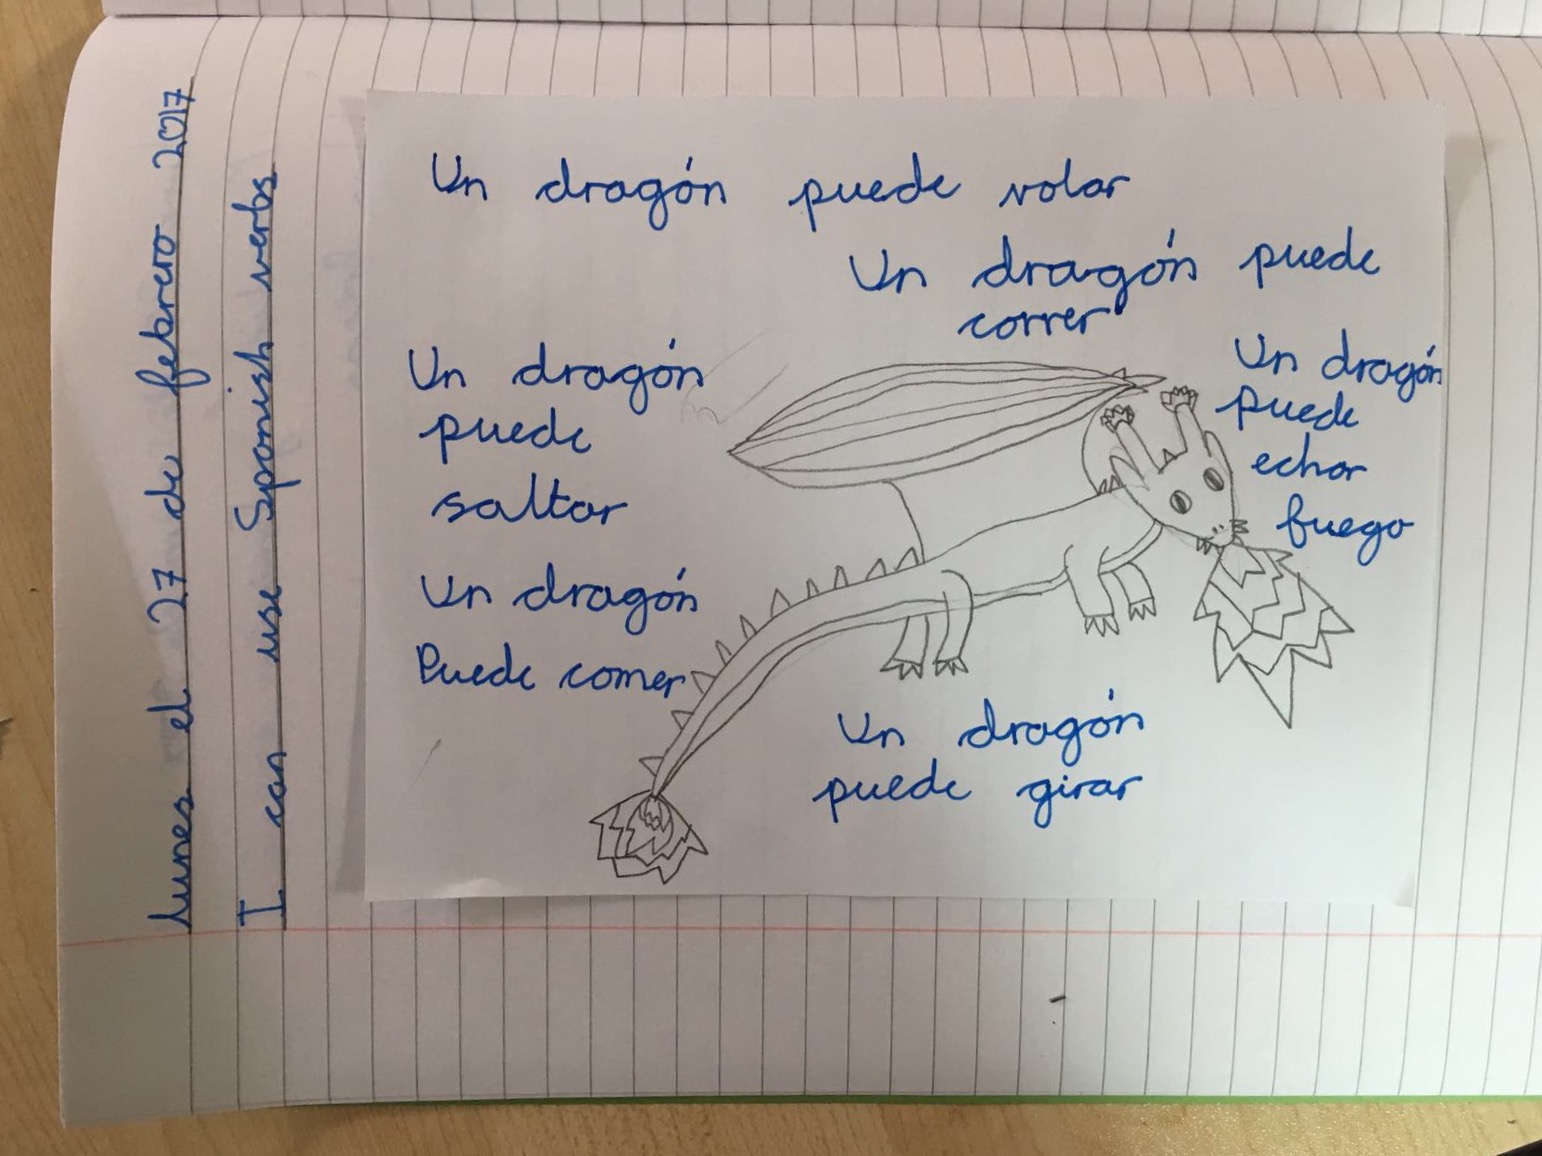 lunes el 27 de febrero 2017
I can use Spanish verbs
Un dragón puede volar
Un dragón puede
correr
Un dragón
puede
saltar
Un dragón
puede
echar
fuego
Un dragón
Puede comer
Un dragón
puede girar